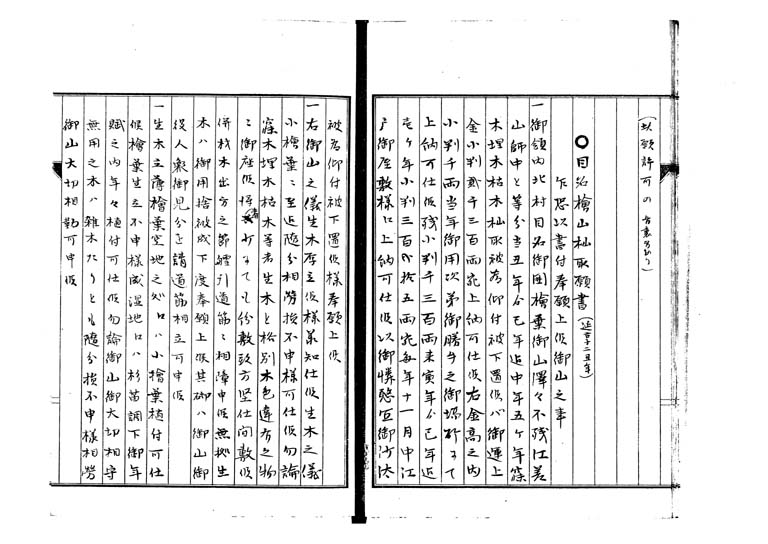 (以願許可の方裏ニあり)
〇目名檜山杣取願書(延享二丑年)
乍恐以書付奉願上候御山之事
一御領内北村目名御囲檜葉御山澤々不残江差
山師中と等分当丑年ゟ巳年迄中年五ヶ年寐
木埋木枯木杣取被為仰付被下置候ハヽ御運上
金小判弐千三百両宛上納可仕候右金高之内
小判千両当年御用次第御勝手之御場所ニて
上納可仕候残小判千三百両来寅年ゟ巳年迄
壱ヶ年小判三百弐拾五両宛毎年十一月中江
戸御屋敷様江上納可仕候以御憐愍宜御沙汰
被為仰付被下置候様奉願上候
一右御山之儀生木厚立候様承知仕候生木之儀
小檜葉ニ至迄随分相労損不申様可仕候勿論
寐木埋木枯木等者生木と格別木色違有之物
ニ御座候得者
併杣木出方之節艫引道筋ニ相障申候無拠生
木ハ御用捨被成下度奉願上候其砌ハ御山御
役人衆御見分を請道筋相立可申候
一生木立薄檜葉空地之処江ハ小檜葉植付可仕
候檜葉生立不申様成湿地江ハ杉苗調下御年
賦之内年々植付可仕候勿論御山御大切相守
無用之木ハ雑木たりとも随分損不申様相労
御山大切相勤可申候